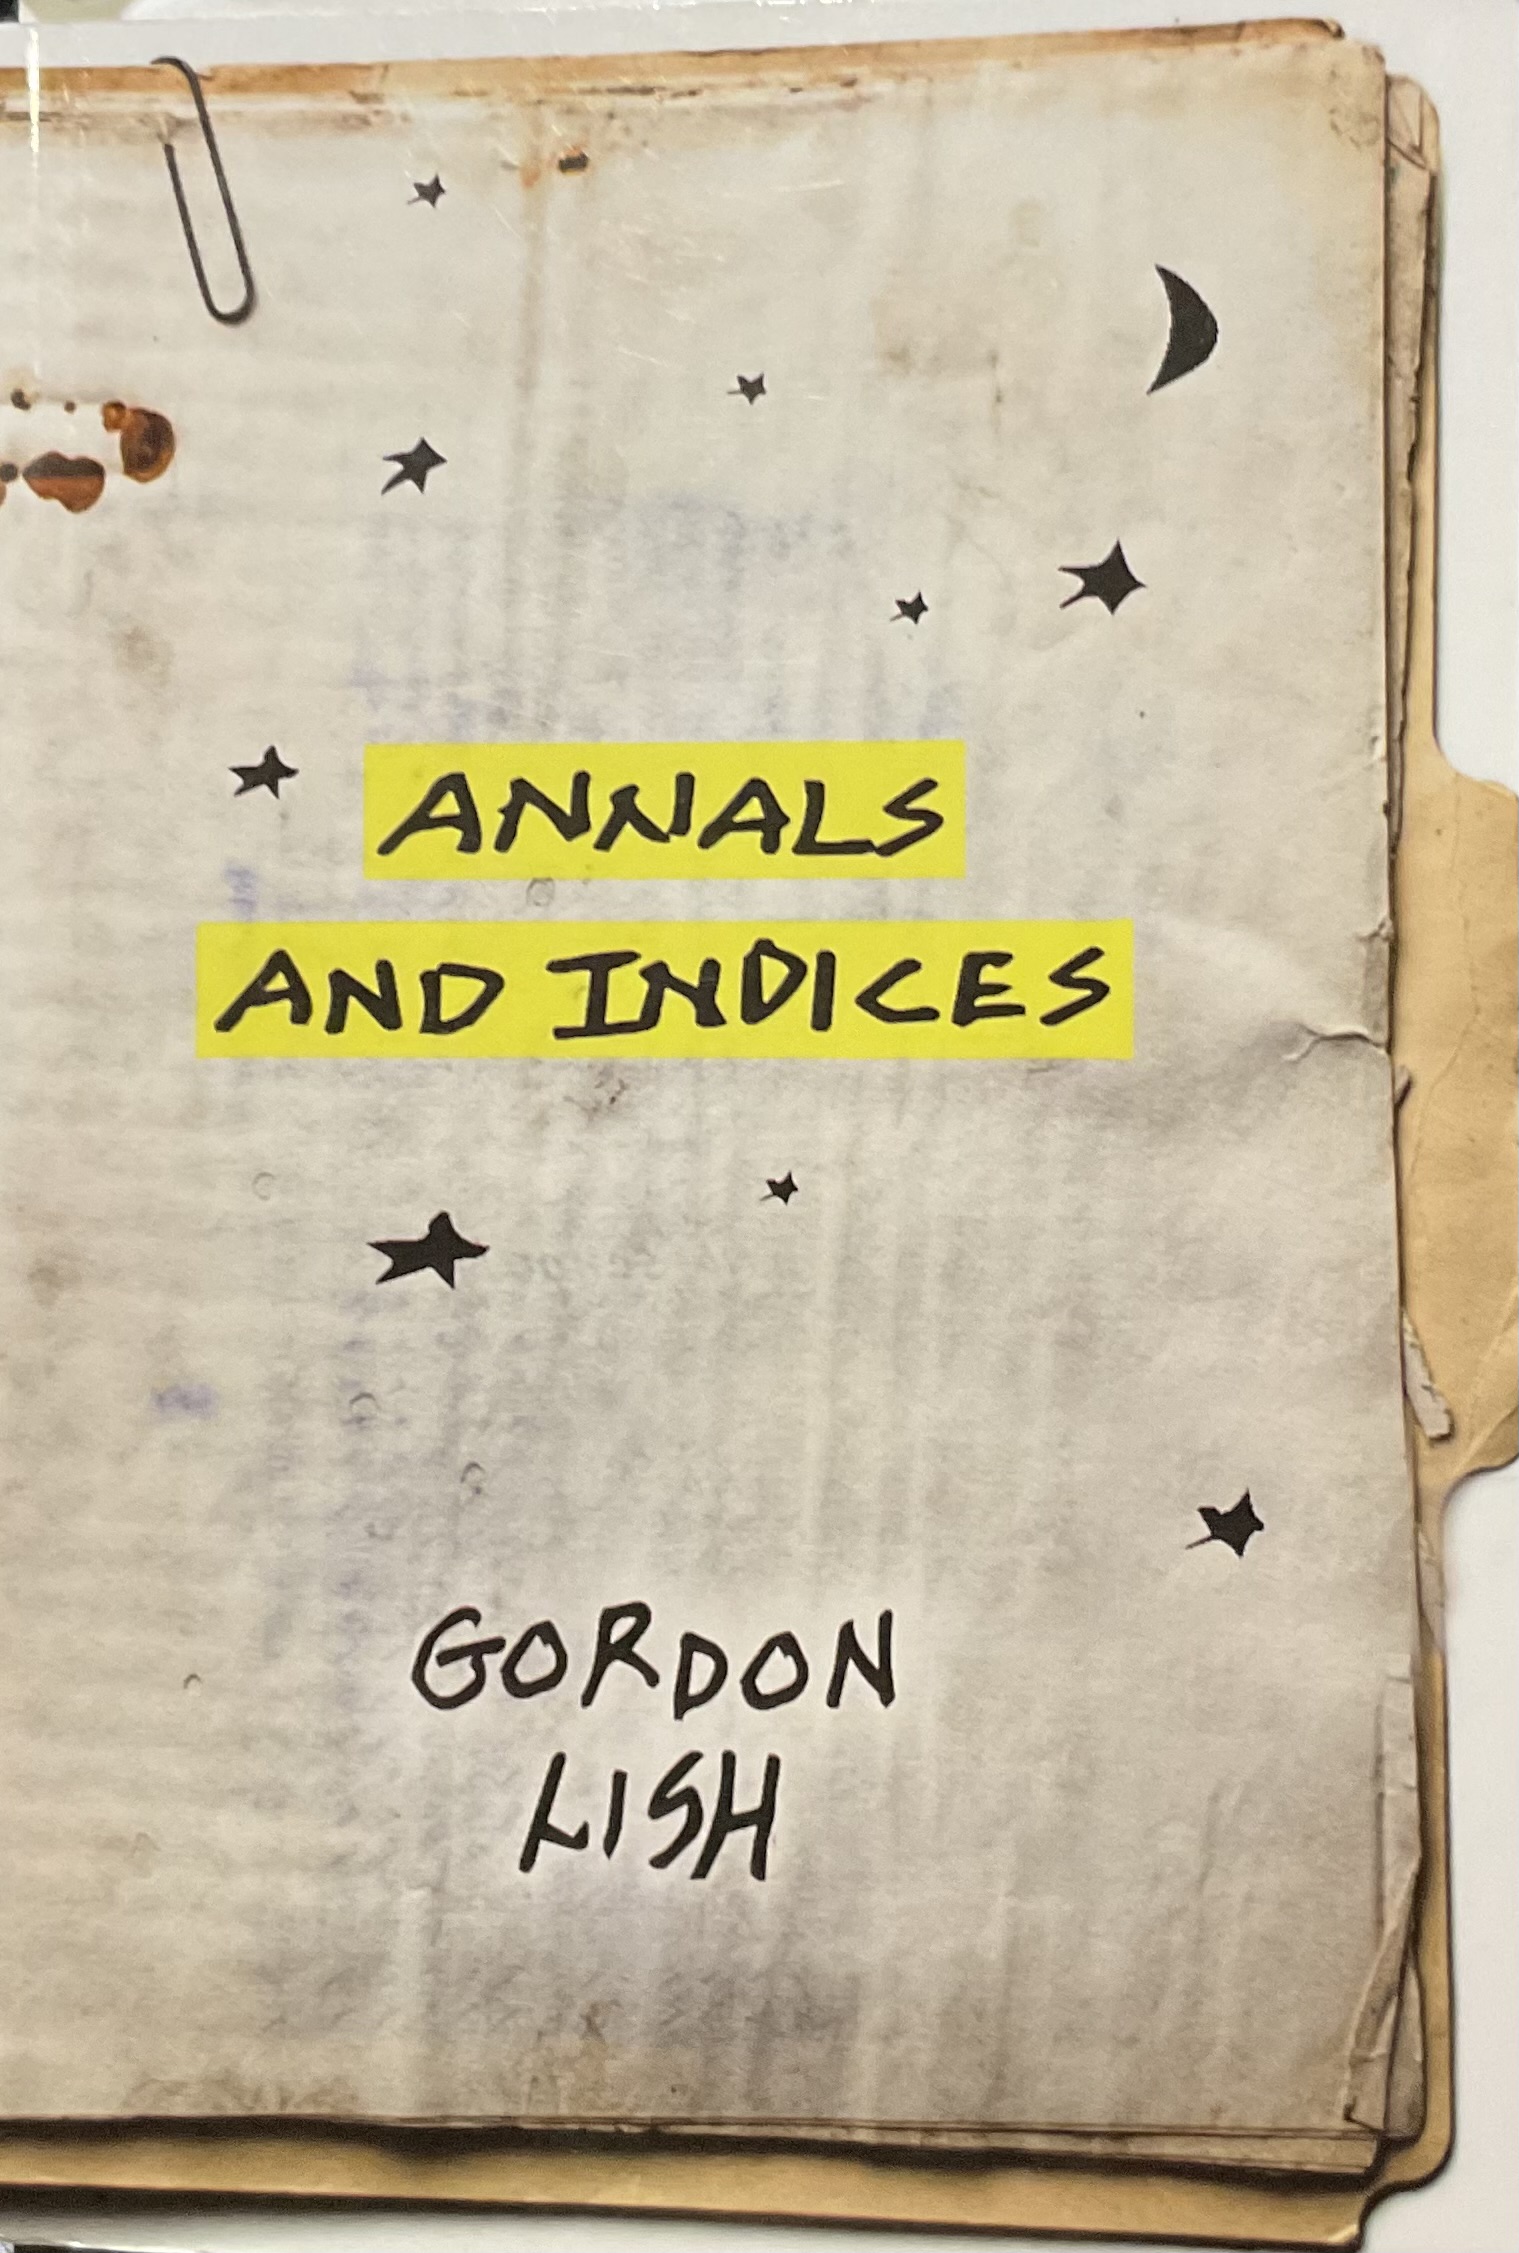 ANNALS
AND INDICES
GORDON
LISH